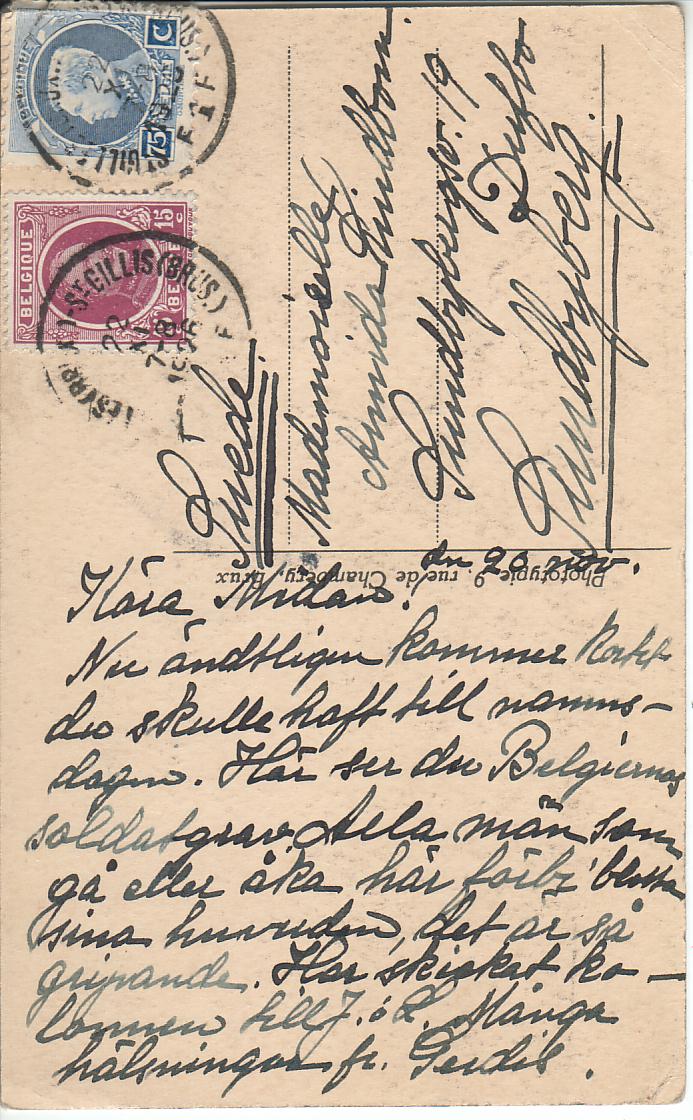 BELGIQUE
75 C
BELGIQUE
15 C
ST GILLIS (BRUS.)
22
XI
7-8
Mademoiselle
Armida Lindbom.
Sundbybergsv. 19
Duvbo
Sundbyberg.
Swede.
Phototypie 9. rue de Chambéry, brux
den 20 nov.
Kära Midan!
Nu ändtligen kommer kortet
du skulle haft till namns-
dagen. Här ser du Belgiernas
soldatgrav. Alla män som
gå eller åka här förbi blotta
sina huvuden, det är så
gripande. Har skickat ko-
lonnen till J. o L. Många
hälsningar fr. Gerdis.